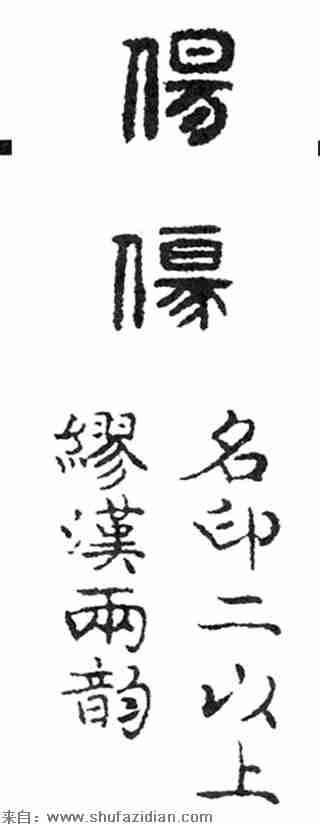 名印二以上
繆漢兩韵
来自：www.shufazidian.com